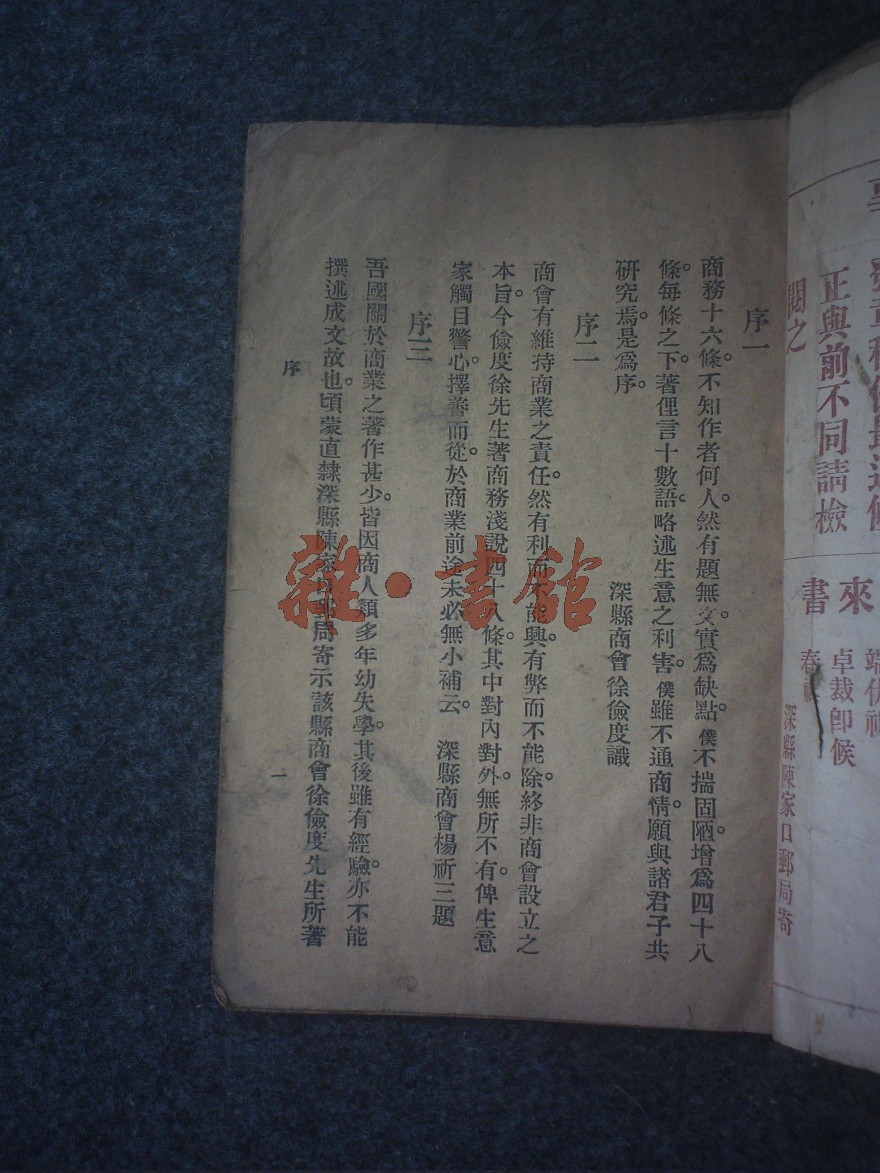 閱之
正與前不同請檢
來書
卓裁卽候
深縣陳家口郵局寄
序一
商務十六條。不知作者何人。然有題無文。實爲缺點。僕不揣固陋。增爲四十八
條。每條之下。著俚言十數語。略述生意之利害。僕雖不通商情。願與諸君子共
研究焉。是爲序。
深縣商會徐儉度識
序二
商會有維持商業之責任。然有利而不能興。有弊而不能除。終非商會設立之
本旨。今儉度徐先生著商務淺說四十八條。其中對內對外。無所不有。俾生意
家觸目警心。擇善而從。於商業前途。未必無小補云。 深縣商會楊祈三題
序三
吾國關於商業之著作甚少。皆因商人類多年幼失學。其後雖有經驗。亦不能
撰述成文故也。頃蒙直隸深縣陳家 郵局寄示該縣商會徐儉度先生所著
序
一
雜·書館